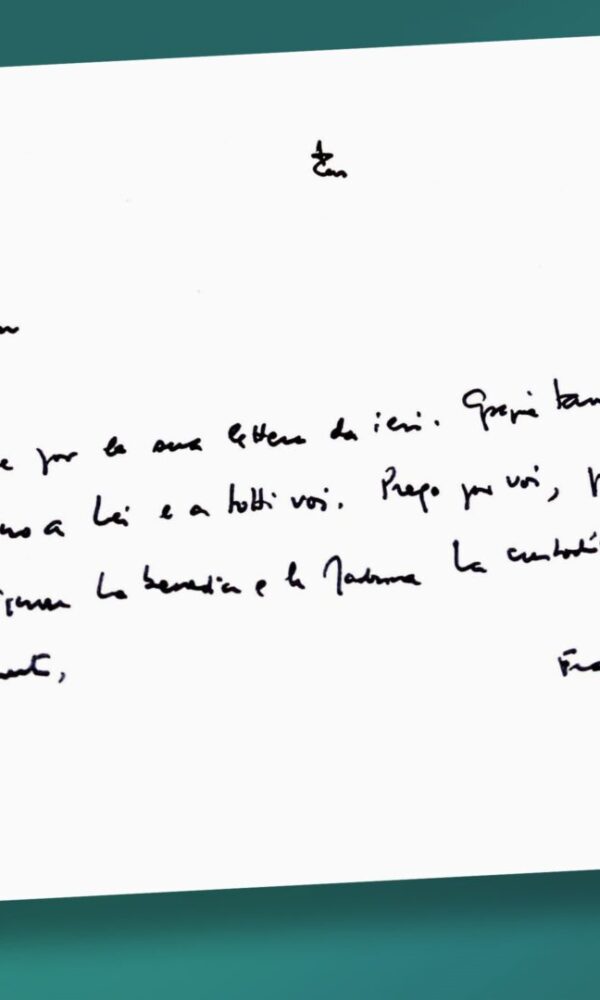 e per la sua lettera da ieri. Grazie tan
a Lei e a tutti voi. Prego per voi,
La benedica e la Madonna La custodi
Fra